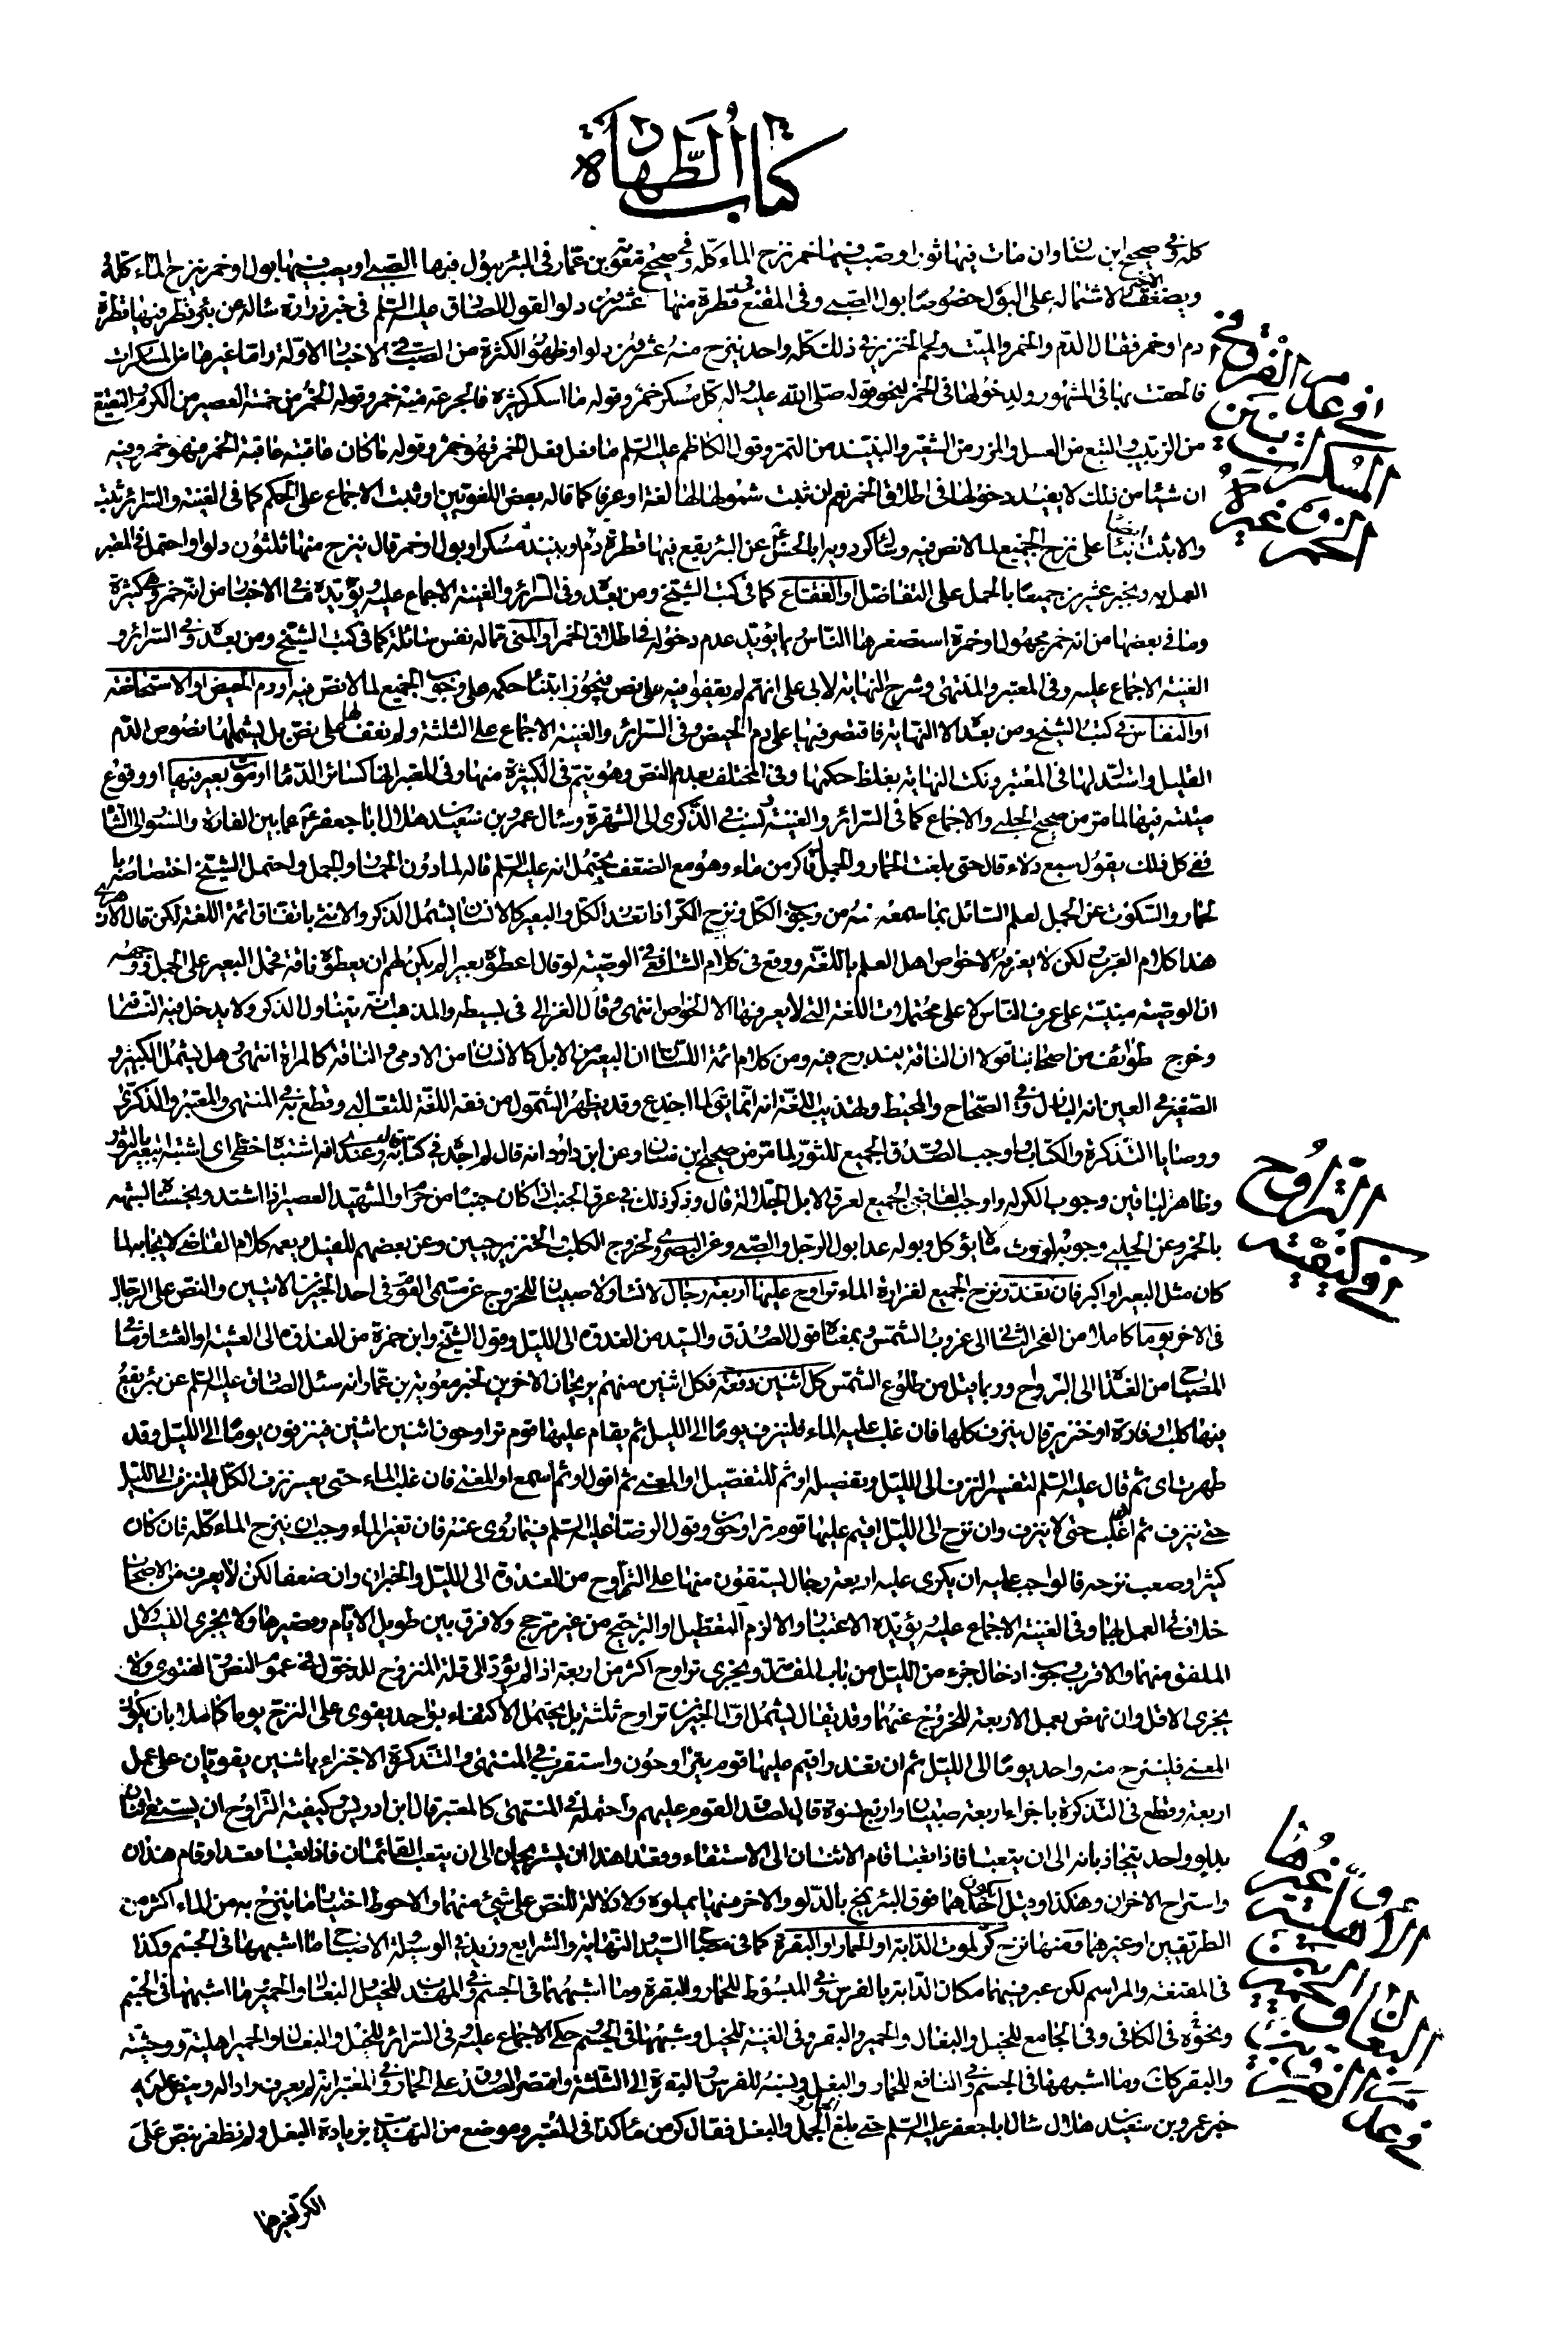 كتاب الطهارة
كله وفي صحيح ابن سنان وان مات فيها ثور او صب فيها خمر نزح الماء كله وفي صحيح معوية بن عمار في البئر يبول فيها الصبي او يصب فيها بول او خمر ينزح الماء كله
ويضعف الاخير لاشتماله على البول خصوصا بول الصبي وفي المقنع في قطرة منها عشرون دلوا لقول الصادق عليه السلم في خبر زرارة سأله عن بئر قطر فيها قطرة
دم او خمر فقال الدم والخمر والميت ولحم الخنزير في ذلك كله واحد ينزح منه عشرون دلوا وظهور الكثرة من الصب في الاخبار الاولة واما غيرها من المسكرات
فالحقت بها في المشهور ولدخولها في الخمر لنحو قوله صلى الله عليه واله كل مسكر خمر وقوله ما اسكر كثيره فالجرعة منه خمر وقوله الخمر من خمسة العصير من الكرم والنقيع
من الزبيب والبتع من العسل والمزر من الشعير والنبيذ من التمر وقول الكاظم عليه السلم ما فعل فعل الخمر فهو خمر وقوله ما كان عاقبته عاقبة الخمر فهو خمر وفيه
ان شيئا من ذلك لا يفيد دخولها في اطلاق الخمر نعم ان ثبت شمولها لها لغة او عرفا كما قاله بعض اللغويين او ثبت الاجماع على الحكم كما في الغنية والسرائر ثبت
والا ابتنى ايضا على نزح الجميع لما لا نص فيه وسأل كردويه ابا الحسن عن البئر يقع فيها قطرة دم او نبيذ مسكر او بول او خمر قال ينزح منها ثلثون دلوا واحتمل في المعتبر
العمل به وبخبر عشرين جميعا بالحمل على التفاضل او الفقاع كما في كتب الشيخ ومن بعده وفي السرائر والغنية الاجماع عليه ويؤيده ما في الاخبار من انه خمر وهي كثيرة
وما في بعضها من انه خمر مجهول او خمرة استصغرها الناس مما يؤيد عدم دخوله في اطلاق الخمر او المني مما له نفس سائلة كما في كتب الشيخ ومن بعده وفي السرائر و
الغنية الاجماع عليه وفي المعتبر والمنتهى وشرح النهاية لابي علي انهم لم يقفوا فيه على نص فيجوز ابتناء حكمه على وجوب الجميع لما لا نص فيه او دم الحيض او الاستحاضة
او النفاس في كتب الشيخ ومن بعده الا النهاية فاقتصر فيها على دم الحيض وفي السرائر والغنية الاجماع على الثلثة ولم نقف لها على نص بل يشملها نصوص الدم
القليل واستدل لها في المعتبر ونكت النهاية بغلظ حكمها وفي المختلف بعدم النص وهو يتم في الكثيرة منها وفي المعتبر انها كسائر الدماء او موت بعير فيها او وقوع
ميتته فيها لما مر من صحيح الحلبي والاجماع كما في السرائر والغنية ونسب في الذكرى الى الشهرة وسأل عمرو بن سعيد بن هلال ابا جعفر عما بين الفارة والسنور الى الشاة
ففي كل ذلك يقول سبع دلاء قال حتى بلغت الحمار والجمل قال كر من ماء وهو مع الضعف يحتمل انه عليه السلم قاله لما دون الجمل واحتمل الشيخ اختصاصه با
لحمار والسكوت عن الجمل لعلم السائل بما سمعه منه من وجوب الكل ونزح الكر اذا تعذر الكل والبعير كالانسان يشمل الذكر والانثى باتفاق ائمة اللغة لكن قال الازهري
هذا كلام العرب لكن لا يعرفه الا خواص اهل العلم باللغة ووقع في كلام الشافعي في الوصية لو قال اعطوه بعيرا لم يكن لهم ان يعطوه ناقة فحمل البعير على الجمل ووجهه
ان الوصية مبنية على عرف الناس لا على محتملات اللغة التي لا يعرفها الا الخواص انتهى وقال الغزالي في بسيطه والمذهب انه يتناول الذكر ولا يدخل فيه الناقة
وخرج طوائف من اصحابنا قولا ان الناقة يندرج فيه ومن كلام ائمة اللسان ان البعير من الابل كالانسان من الادمي والناقة كالمراة انتهى وهل يشمل الكبير و
الصغير في العين انه البازل وفي الصحاح والمحيط وتهذيب اللغة انه انما يقال لما اجذع وقد يظهر الشمول من فقه اللغة للثعالبي وقطع به في المنتهى والمعتبر والذكرى
ووصايا التذكرة والكتاب واوجب الصدوق الجميع للثور لما مر من صحيح ابن سنان وعن ابن داود انه قال لم اجده في كتابه وعندي انه اشتبه خطه اي اشتبه البعير بالثور
وظاهر الباقين وجوب الكر له واوجب القاضي الجميع لعرق الابل الجلالة قال وذكر ذلك في عرق الجنب اذا كان جنبا من حرام والشهيد العصير اذا اشتد ونجسناه لشبهه
بالخمر وعن الحلبي وجوبه لروث ما لا يؤكل وبوله عدا بول الرجل والصبي وعن البصروي لخروج الكلب والخنزير حيين وعن بعضهم للفيل ويعمه كلام القاضي لايجابه لما
كان مثل البعير او اكبر فان تعذر نزح الجميع لغزارة الماء تراوح عليها اربعة رجال لا نساء ولا صبيان للخروج عن مسمى القوم في احد الخبرين الاتيين والنص على الرجال
في الاخر يوما كاملا من الفجر الثاني الى غروب الشمس بمعناه قول الصدوق والسيد من الغدوة الى الليل وقول الشيخ وابن حمزة من الغدوة الى العشية او العشاء وفي
المصباح من الغداة الى الرواح وربما قيل من طلوع الشمس كل اثنين دفعة فكل اثنين منهم يريحان الاخرين لخبر معوية بن عمار انه سئل الصادق عليه السلم عن بئر يقع
فيها كلب او فارة او خنزير قال ينزف كلها فان غلب عليه الماء فلينزف يوما الى الليل ثم يقام عليها قوم تراوحون اثنين اثنين فينزفون يوما الى الليل وقد
طهرت اي ثم قال عليه السلم لتفسير النزف الى الليل وتفصيله او ثم للتفصيل او المعنى ثم اقول او ثم اسمع او المعنى فان غلب الماء حتى يعسر نزف الكل فلينزف الى الليل
حتى ينزف ثم ان غلب حتى لا ينزف وان نزح الى الليل اقيم عليها قوم تراوحون وقول الرضا عليه السلم فيما روي عنه فان تغير الماء وجب ان ينزح الماء كله فان كان
كثيرا وصعب نزحه فالواجب عليه ان يكرى عليه اربعة رجال يستقون منها على التراوح من الغدوة الى الليل والخبران وان ضعفا لكن لا يعرف من الاصحاب
خلاف في العمل بهما وفي الغنية الاجماع عليه ويؤيده الاعتبار والا لزم التعطيل او الترجيح من غير مرجح ولا فرق بين طويل الايام وقصيرها ولا يجزي الليل ولا
الملفق منهما والاقرب وجوب ادخال جزء من الليل من باب المقدمة ويجزي تراوح اكثر من اربعة اذا لم يؤد الى قلة المنزوح للدخول في عموم النص والفتوى ولا
يجزي الاقل وان نهض بعمل الاربعة للخروج عنهما وقد يقال يشمل اول الخبرين تراوح ثلثة بل يحتمل الاكتفاء بواحد يقوى على النزح يوما كاملا بان يكون
المعنى فلينزح منه واحد يوما الى الليل ثم ان تعذر اقيم عليها قوم يتراوحون واستقرب في المنتهى والتذكرة الاجتزاء باثنين يقويان على عمل
اربعة وقطع في التذكرة باجزاء اربعة صبيان او اربع نسوة قال لصدق القوم عليهم واحتمله في المنتهى كالمعتبر قال ابن ادريس وكيفية التراوح ان يستقي اثنان
بدلو واحد يتجاذبانه الى ان يتعبا فاذا تعبا قام الاثنان الى الاستقاء وقعدا هذان يستريحان الى ان يتعب القائمان فاذا تعبا قعدا وقام هذان
واستراح الاخران وهكذا وقيل يكون احدهما فوق البئر يمتح بالدلو والاخر فيها يملوه ولا دلالة للنص على شيء منهما والاحوط اختيار ما ينزح به من الماء اكثر من
الطريقين او غيرهما ومنها نزح كر لموت الدابة او الحمار او البقرة كما في مصباح السيد والنهاية والشرايع وزيد في الوسيلة الاصباح ما اشبهها في الجسم وكذا
في المقنعة والمراسم لكن عبر فيهما مكان الدابة بالفرس وفي المبسوط للحمار والبقرة وما اشبههما في الجسم وفي المهذب للخيل والبغال والحمير وما اشبهها في الجسم
ونحوه في الكافي وفي الجامع للخيل والبغال والحمير والبقر وفي الغنية للخيل وشبهها في الجسم حكى الاجماع عليه وفي السرائر للخيل والبغال والحمير اهلية ووحشية
والبقر كانت وما اشبهها في الجسم وفي النافع للحمار والبغل ونسبه للفرس والبقرة الى الثلثة واقتصر الصدوق على الحمار وفي المعتبر انه لم يعرف راداله وينص عليه
خبر عمرو بن سعيد بن هلال سال ابا جعفر عليه السلم حتى بلغ الحمار والجمل والبغل فقال كر من ماء كذا في المعتبر وموضع من التهذيب بزيادة البغل ولم نظفر بنص على
الكر لغيرها
في عدم الفرق في
المسكرات بين
الخمر وغيره
التراوح
في كيفية
في عدم الفرق
بين
الاهلية
وغيرها